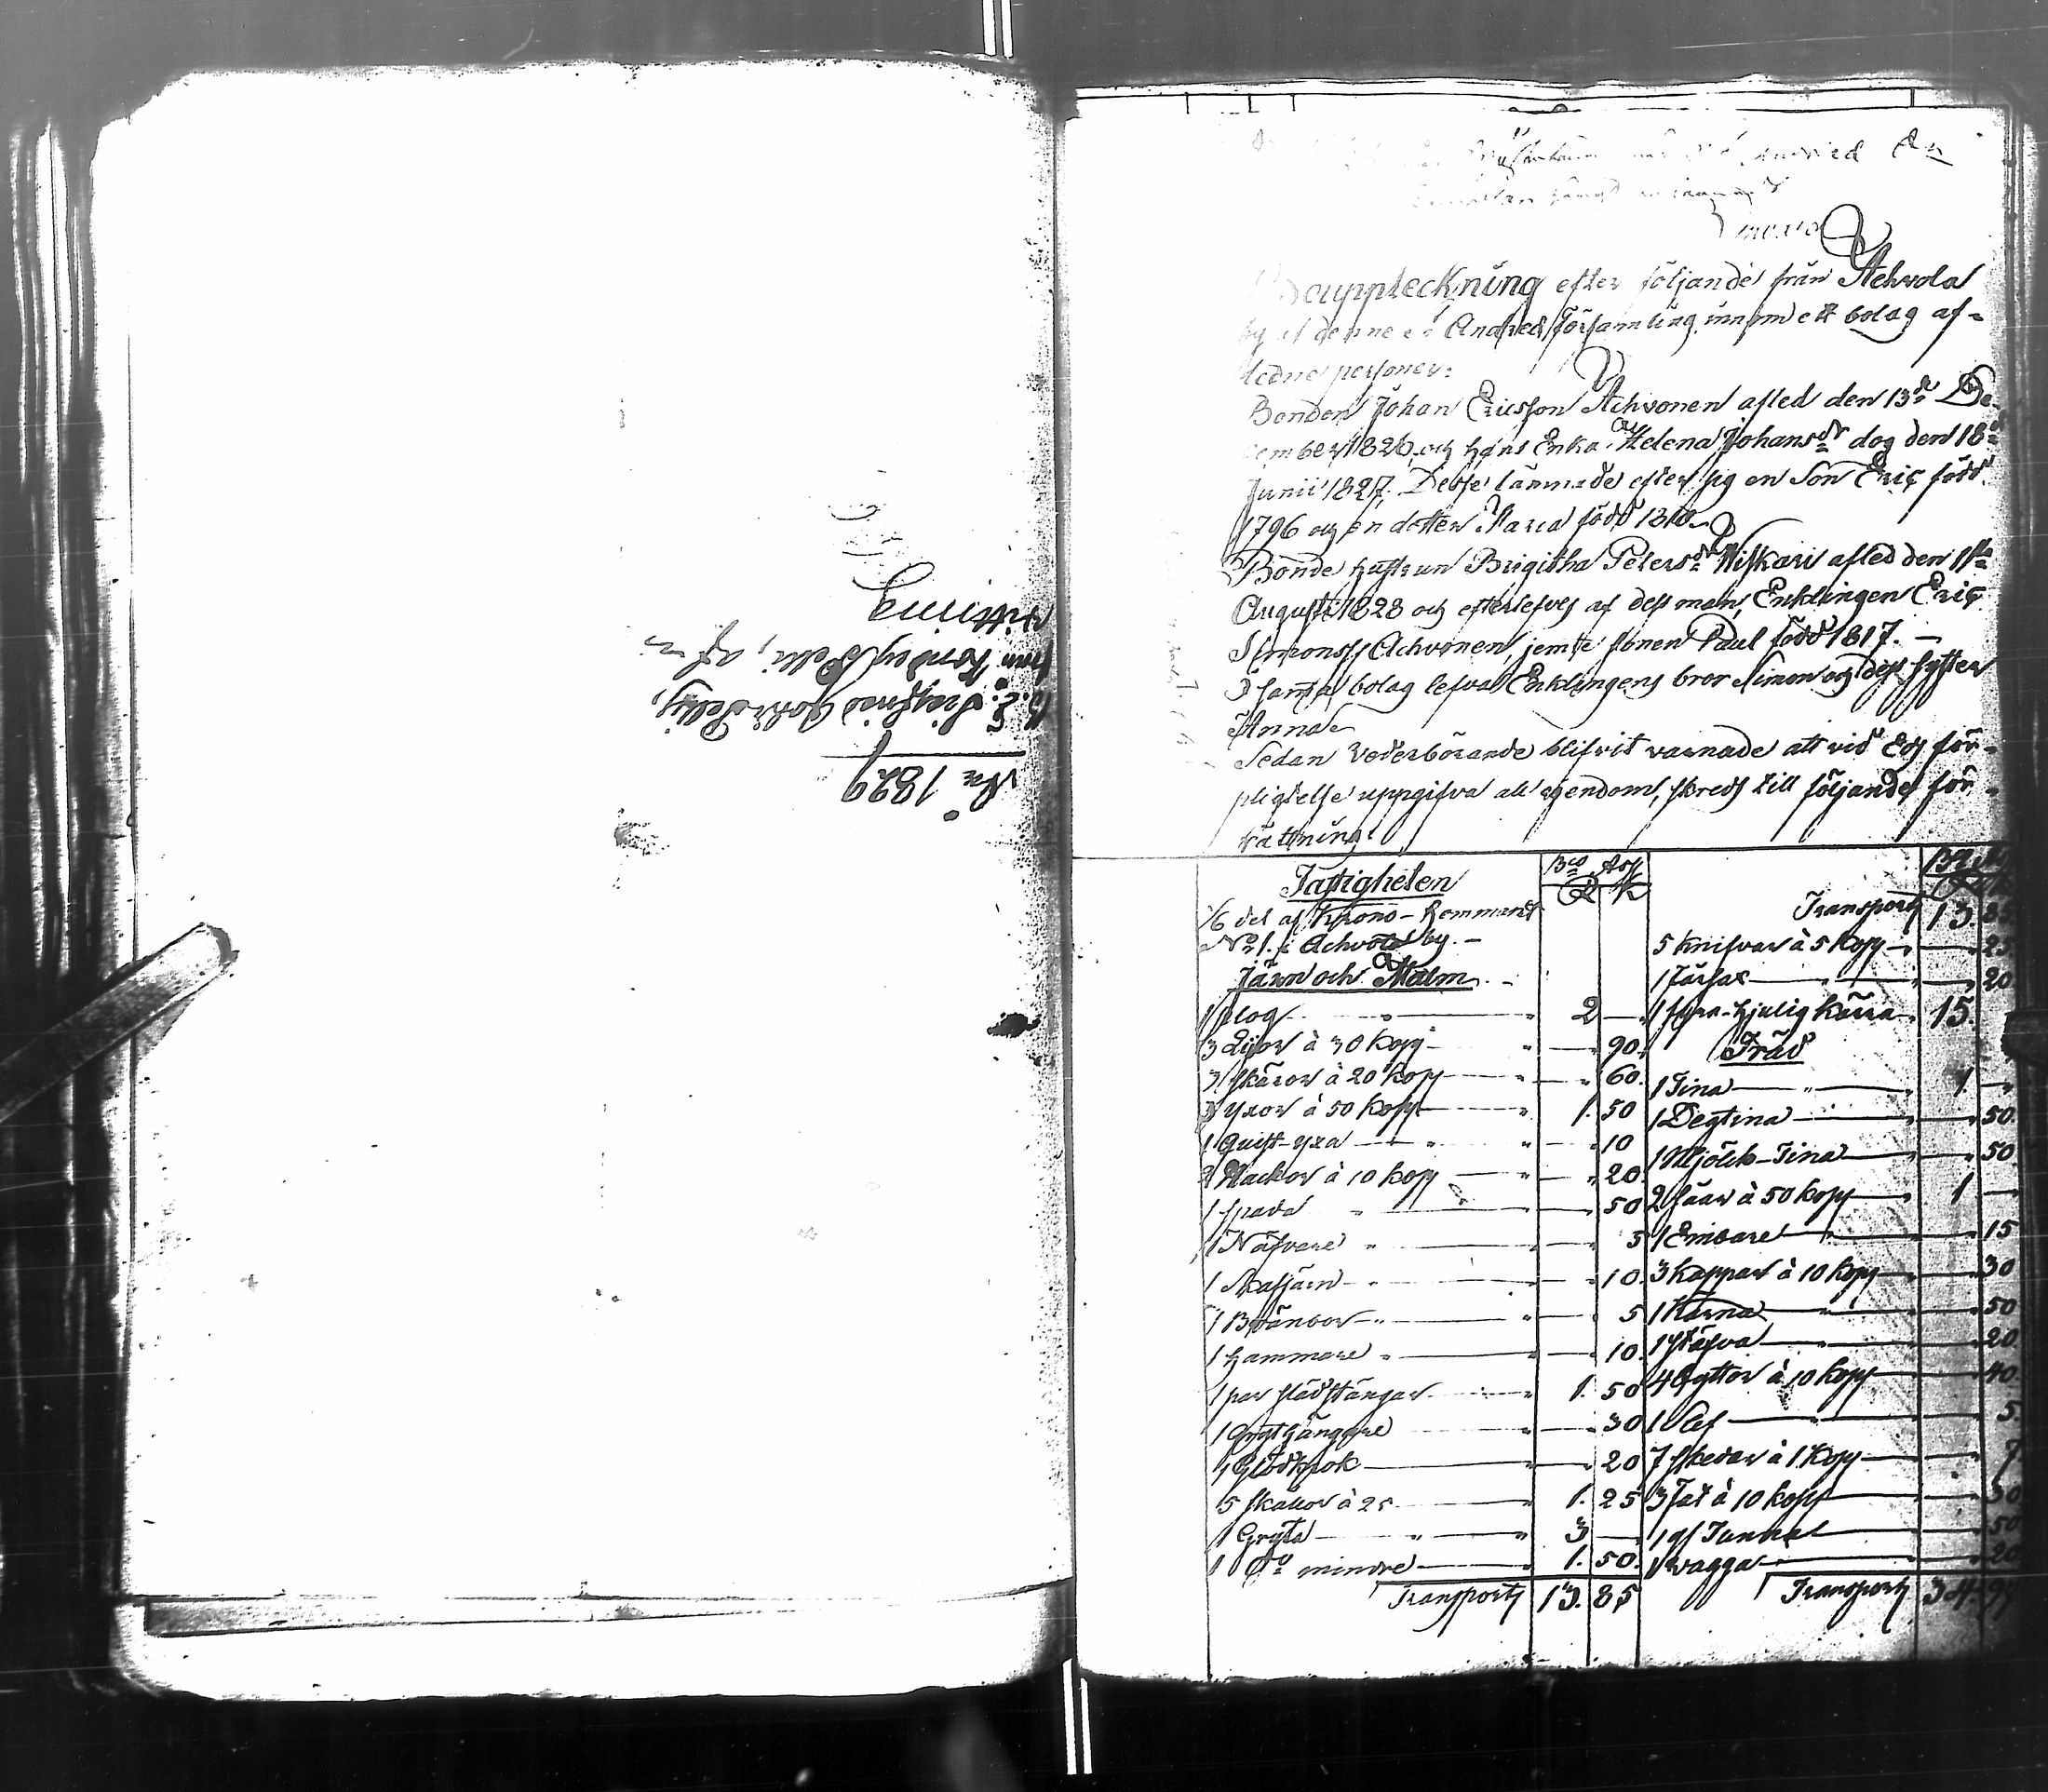 Åhr 1829
från Kondus Pelli, af-
vittring
Bouppteckning efter följande från Achvola
by af denne S:t Andreæ Församling innom ett bolag af-
ledne personer:
Bonden Johan Ericsson Achvonen afled den 13de De-
cember 1826, och hans Enka Helena Johansdr dog den 18de
Junii 1827. Desse lämnade efter sig en Son Eric född
1796 och en dotter Maria född 1810.
Bonde hustrun Brigitha Petersdr Wiskari afled den 1sta
Augusti 1828 och efterlefves af dess man, Enklingen Eric
Simonss Achvonen, jemte sonen Paul född 1817. —
I samma bolag lefva Enklingens bror Simon och dess syster
Anna
Sedan vederbörande blifvit varnade att vid Eds för-
pligtelse uppgifva all egendom, skreds till följande för-
rättning:
Fastigheten
Bco Ass
R K
1/6 del af Krono-Hemmanet
No 1. i Achvola by. —
Järn och Malm
1 plog 2 —
3 Lijor à 30 kop 90.
3 skäror à 20 kop 60.
3 yxor à 50 kop 1. 50
1 Quist-yxa 10
2 Hackor à 10 kop 20.
1 spada 50
1 Näfvare 5
1 Skafjärn 10.
1 Brännor 5
1 hammare 10.
1 par slädstänger 1. 50
1 Grythängare 30
1 Glödkrok 20
5 skållor à 25 1. 25
1 Gryta 3 —
1 Do mindre 1. 50.
Transport 13. 85
Transport 13. 85
5 knifvar à 5 kop 25
1 Fårsax 20
1 fyra-hjulig Kärra 15.
Träd
1 Tina 1 —
1 Degtina 50.
1 Mjölk-Tina 50.
2 såar à 50 kop 1 —
1 Embare 15
3 Kappar à 10 kop 30
1 Kärna 50
1 Stäfva 20
4 Byttor à 10 kop 40.
1 Slef 5.
7 skedar à 1 kop 7
3 Fat à 10 kop 30
1 gl Tunna 50
1 vagga 20
Transport 34. 97